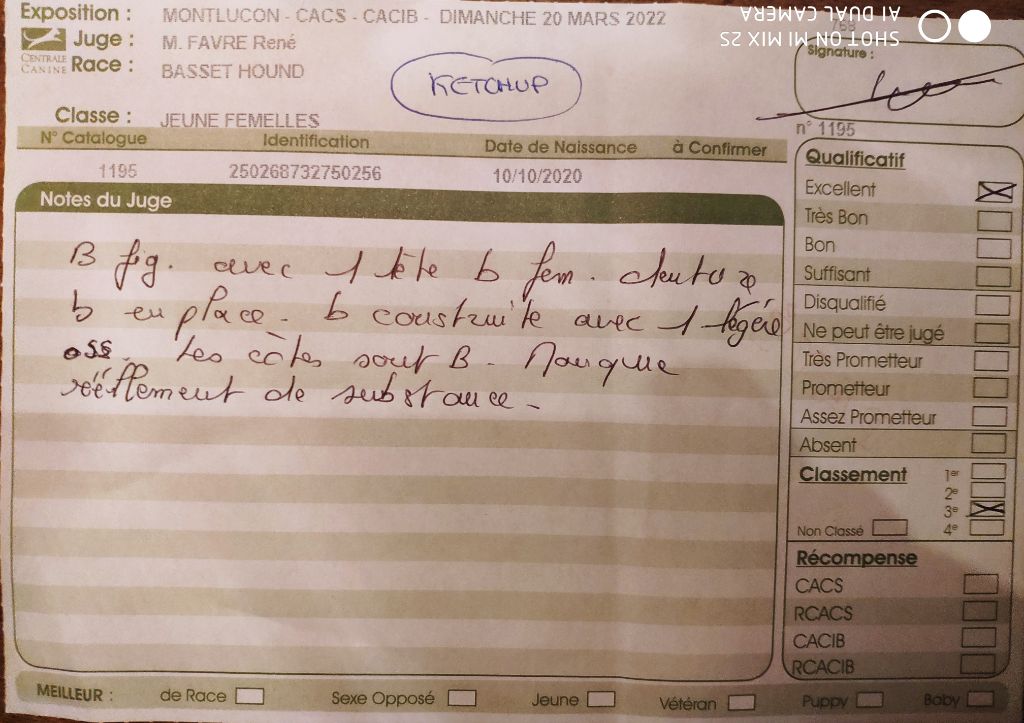 Exposition : MONTLUCON - CACS - CACIB - DIMANCHE 20 MARS 2022
Juge : M. FAVRE René
CENTRALE CANINE
Race : BASSET HOUND
KETCHUP
Classe : JEUNE FEMELLES
SHOT ON MI MIX 2S
AI DUAL CAMERA
Signature :
N° Catalogue Identification Date de Naissance à Confirmer
1195 250268732750256 10/10/2020
n° 1195
Notes du Juge
B fig. avec 1 tête b fem.
b en place - b construite avec 1 légère
oss. Les côtes sont B - Manque
réellement de substance -
Qualificatif
Excellent
Très Bon
Bon
Suffisant
Disqualifié
Ne peut être jugé
Très Prometteur
Prometteur
Assez Prometteur
Absent
Classement 1er
2e
3e
Non Classé 4e
Récompense
CACS
RCACS
CACIB
RCACIB
MEILLEUR : de Race Sexe Opposé Jeune Vétéran Puppy Baby